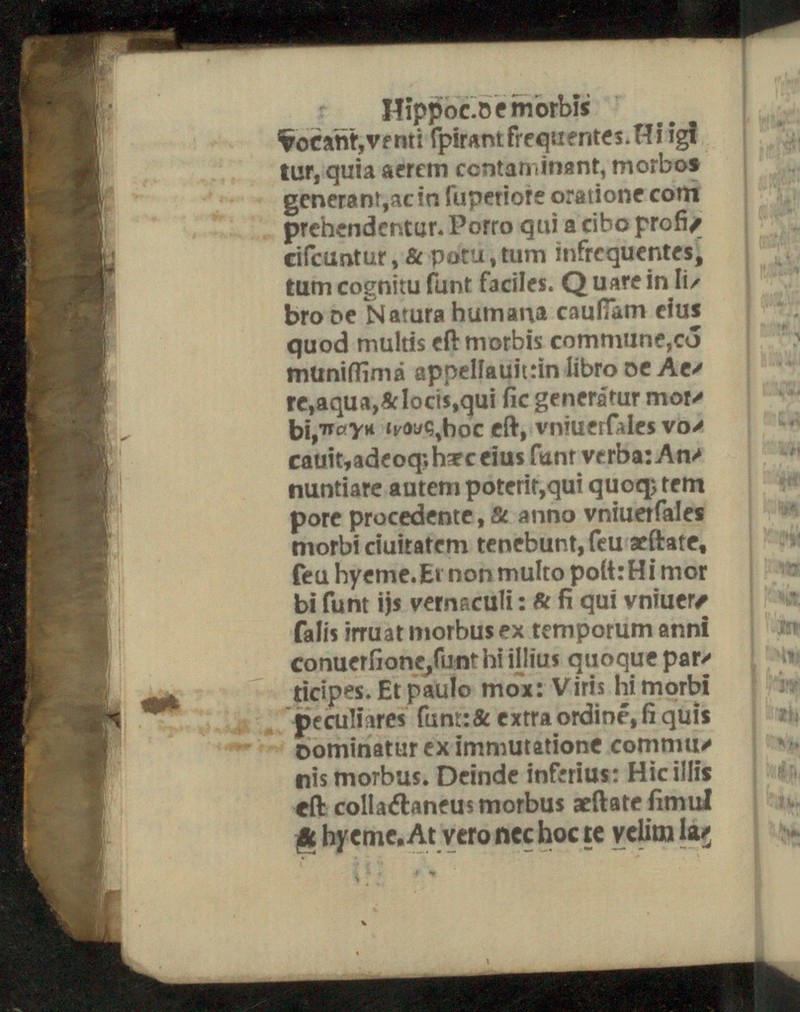 Hippoc. de morbis
vocant, venti ſpirant frequentes. Hi igi
tur, quia aerem contaminant, morbos
generant, ac in ſuperiore oratione com
prehendentur. Porro qui a cibo profi⸗
ciſcuntur, & potu, tum infrequentes,
tum cognitu ſunt faciles. Quare in li⸗
bro de Natura humana cauſſam eius
quod multis eſt morbis commune, cõ
muniſſimã appellauit: in libro de Ae⸗
re, aqua, & locis, qui ſic generãtur mor⸗
bi, hoc eſt, vniuerſales vo⸗
cauit, adeoq; hæc eius ſunt verba: An⸗
nuntiare autem poterit, qui quoq; tem
pore procedente, & anno vniuerſales
morbi ciuitatem tenebunt, ſeu æſtate,
ſeu hyeme. Et non multo poſt: Hi mor
bi ſunt ijs vernaculi: & ſi qui vniuer⸗
ſalis irruat morbus ex temporum anni
conuerſione, ſunt hi illius quoque par⸗
ticipes. Et paulo mox: Viris hi morbi
peculiares ſunt: & extra ordinẽ, ſi quis
dominatur ex immutatione commu⸗
nis morbus. Deinde inferius: Hic illis
eſt collactaneus morbus æſtate ſimul
& hyeme. At vero nec hoc te velim la⸗